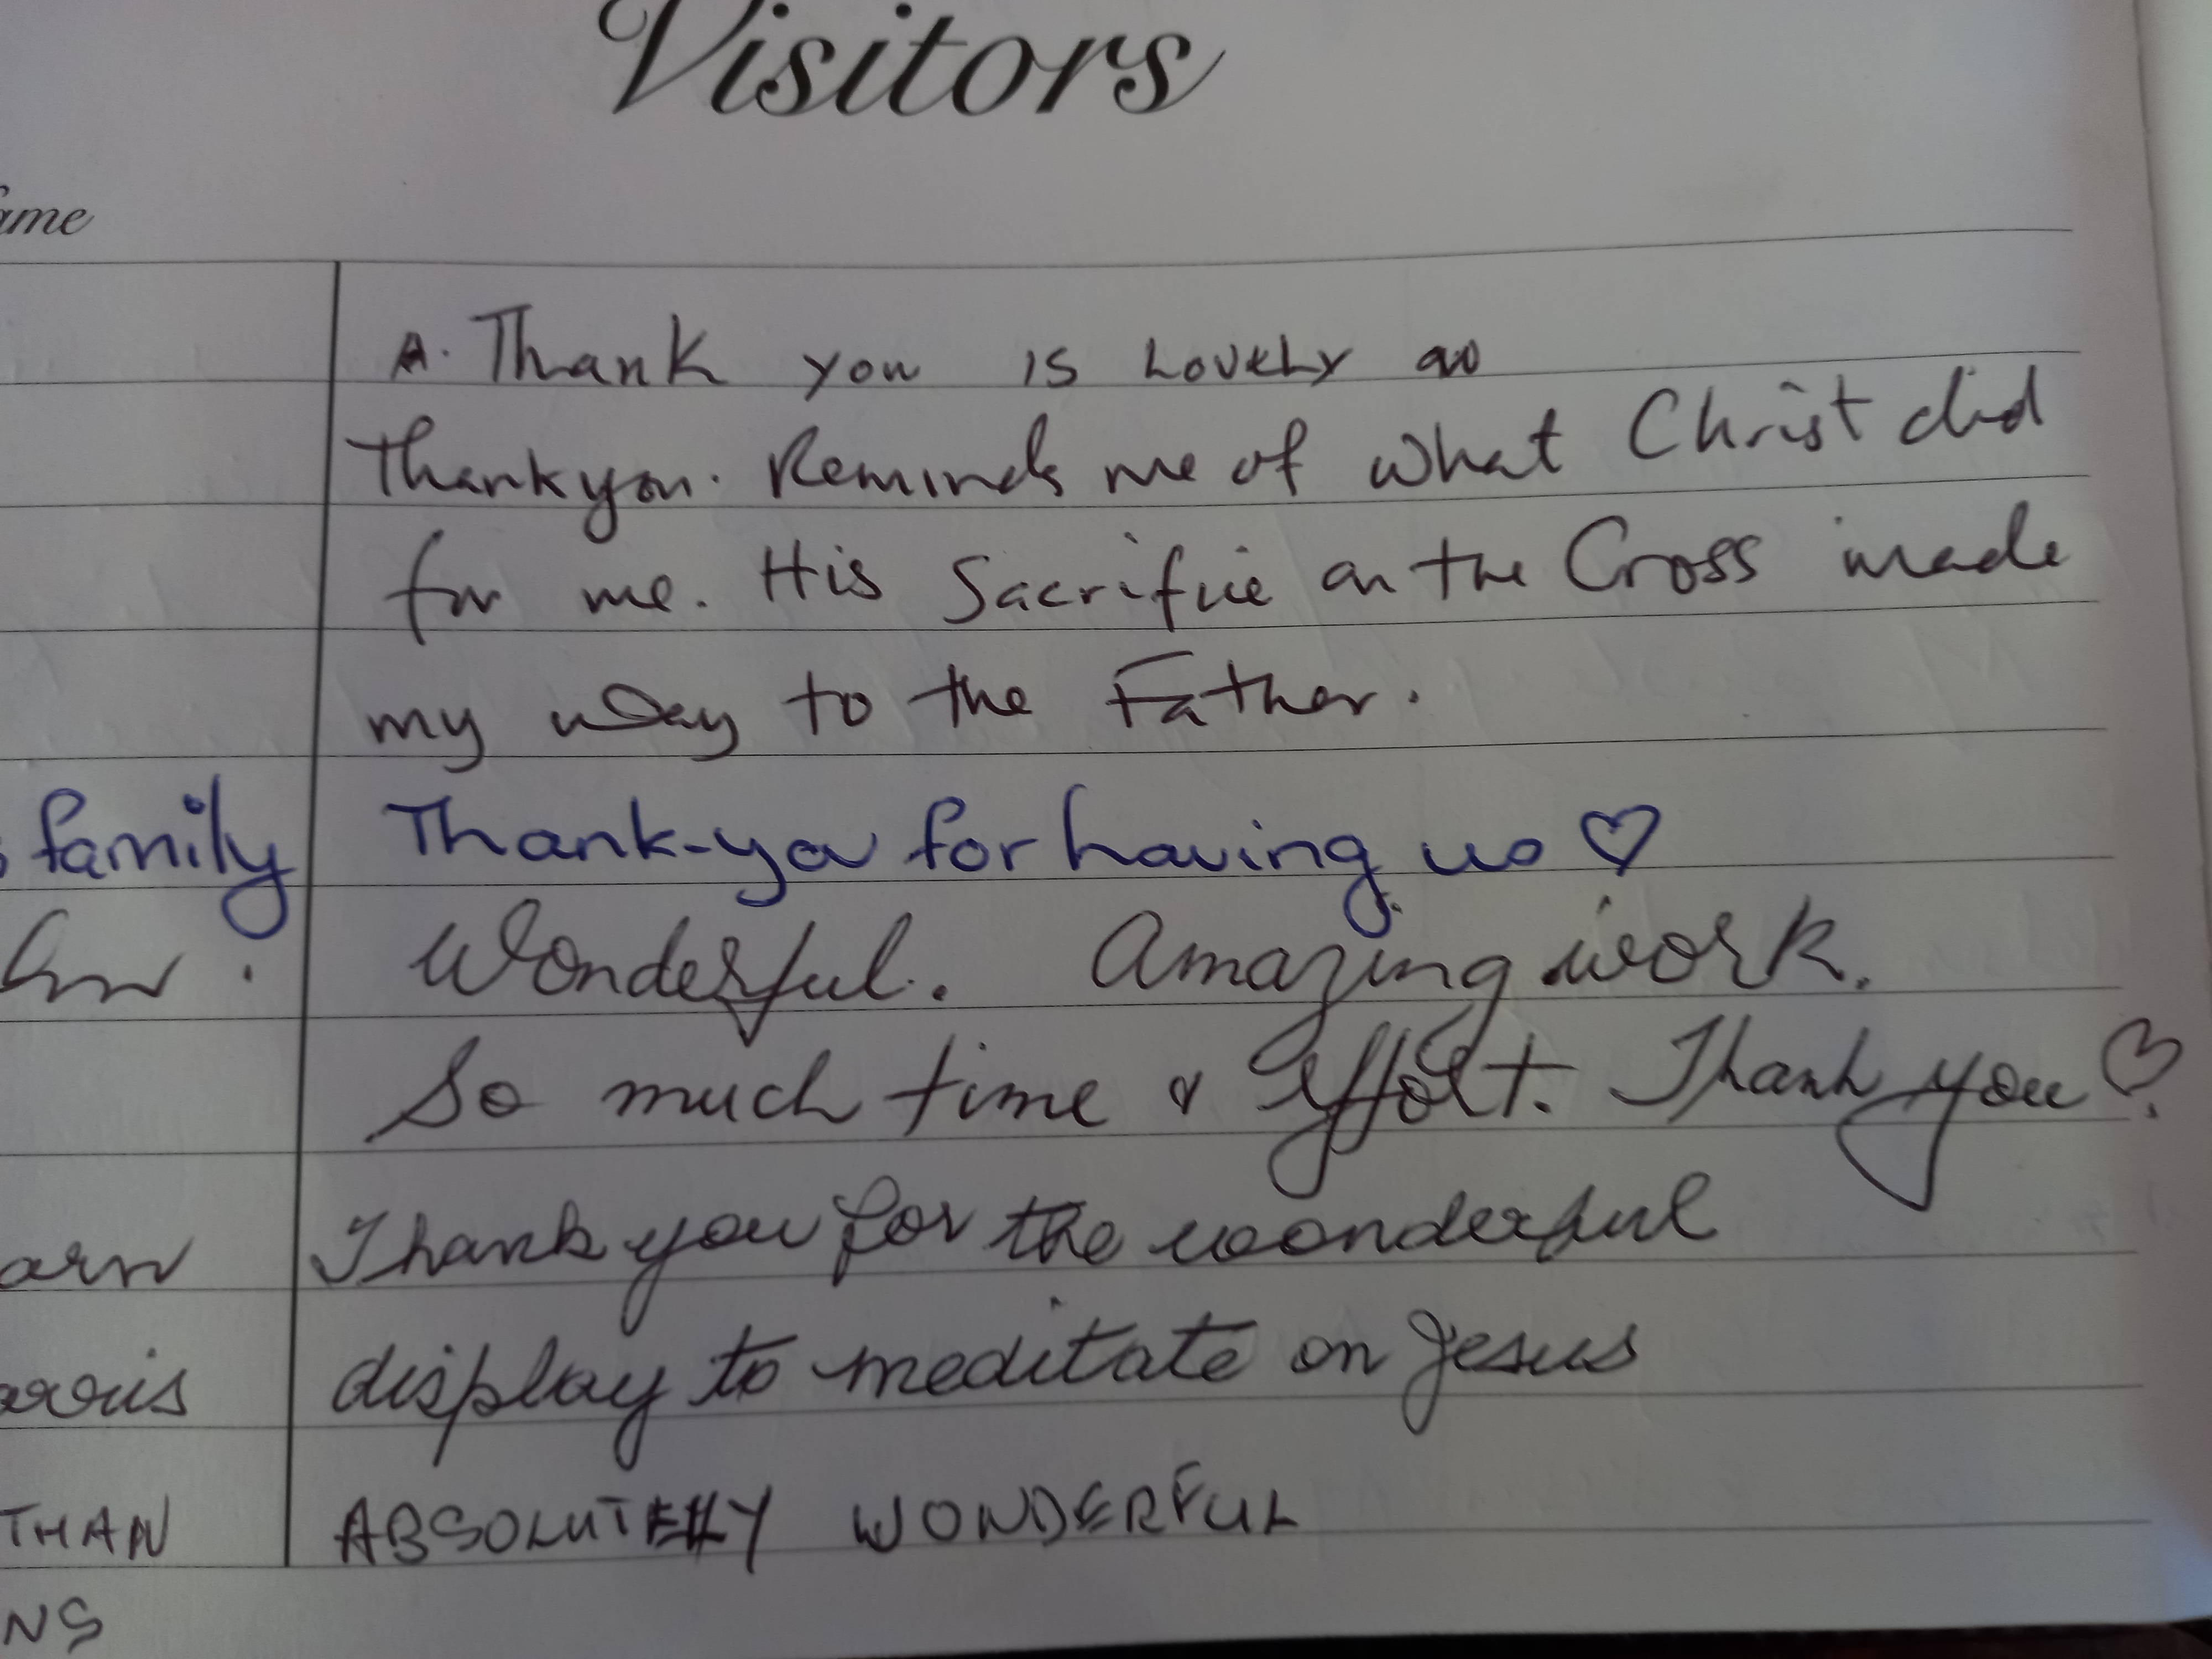 Visitors
ame
A. Thank you is Lovely
Thankyou. Reminds me of what Christ did
for me. His Sacrifice on the Cross made
my way to the Father.
family Thank-you for having us ♡
Wonderful. Amazing work.
So much time & effort. Thank you ♡
arn Thank you for the wonderful
arris display to meditate on Jesus
THAN ABSOLUTELY WONDERFUL
NS